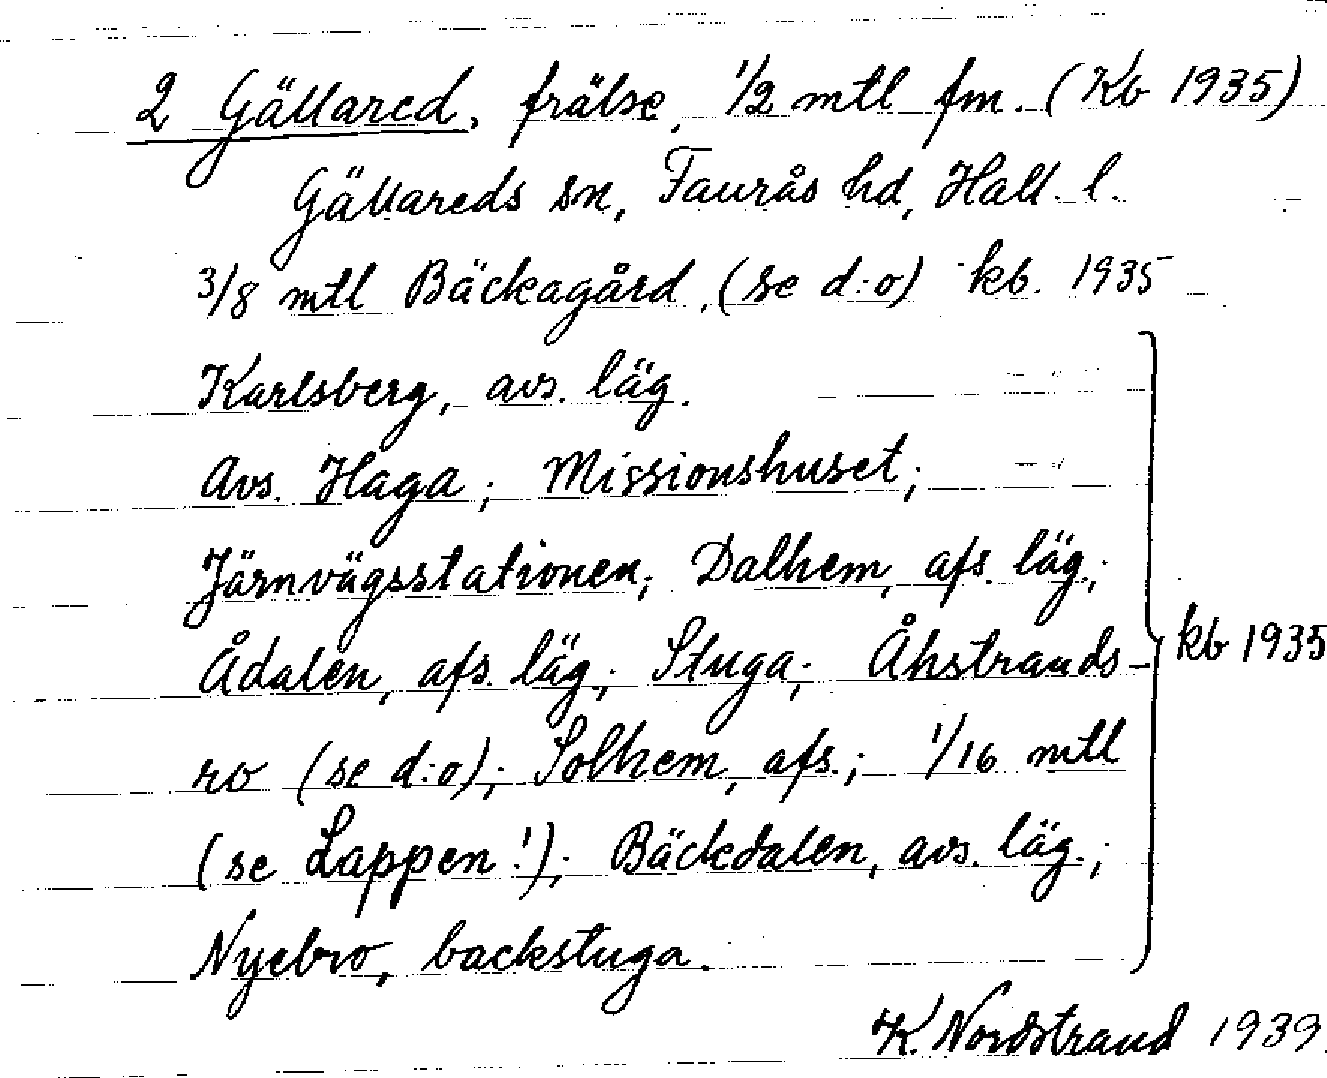 2 Gällared, frälse, 1/2 mtl fm. (Kb 1935)
Gällareds sn, Faurås hd, Hall. l.
3/8 mtl Bäckagård, (se d:o) kb. 1935
Karlsberg, avs. läg.
Avs. Haga; Missionshuset;
Järnvägsstationen; Dalhem, afs. läg.;
Ådalen, afs. läg.; Stuga; Åhstrands-
ro (se d:o); Solhem, afs.; 1/16 mtl
(se Lappen!); Bäckdalen, avs. läg.;
Nyebro, backstuga.
kb 1935
K. Nordstrand 1939